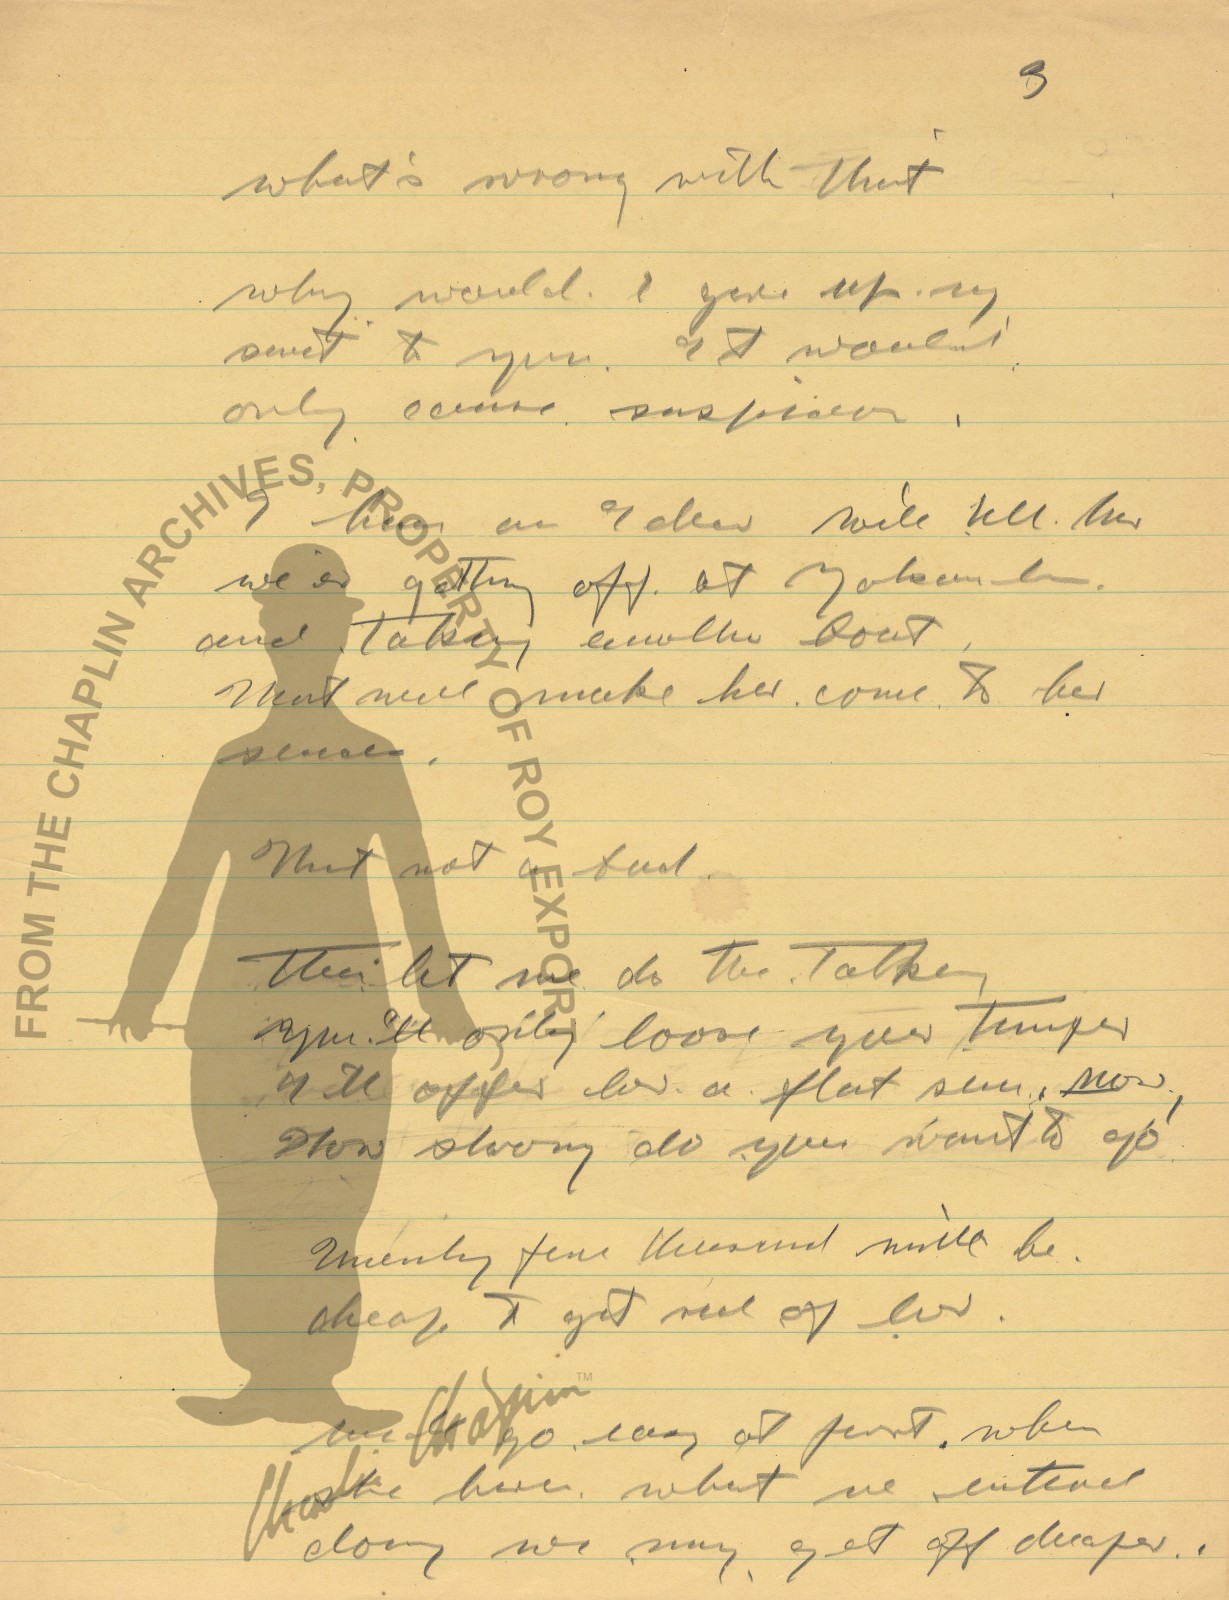 3
what's wrong with that
why would I give up my
suit to you. It would
only cause suspicion.
I have an Idea will tell her
we'er getting off at Yokohama
and taking another boat.
that will make her come to her
senses.
That not a bad.
let me do the talking
You'll only loose your temper
I'll offer her a flat sum, now,
How strong do you want to go
Twenty five thousand will be
cheap to get rid of her.
go easy at first. when
she hears what we intend
doing we may get off cheaper.
FROM THE CHAPLIN ARCHIVES, PROPERTY OF ROY EXPORT
Charlie Chaplin™